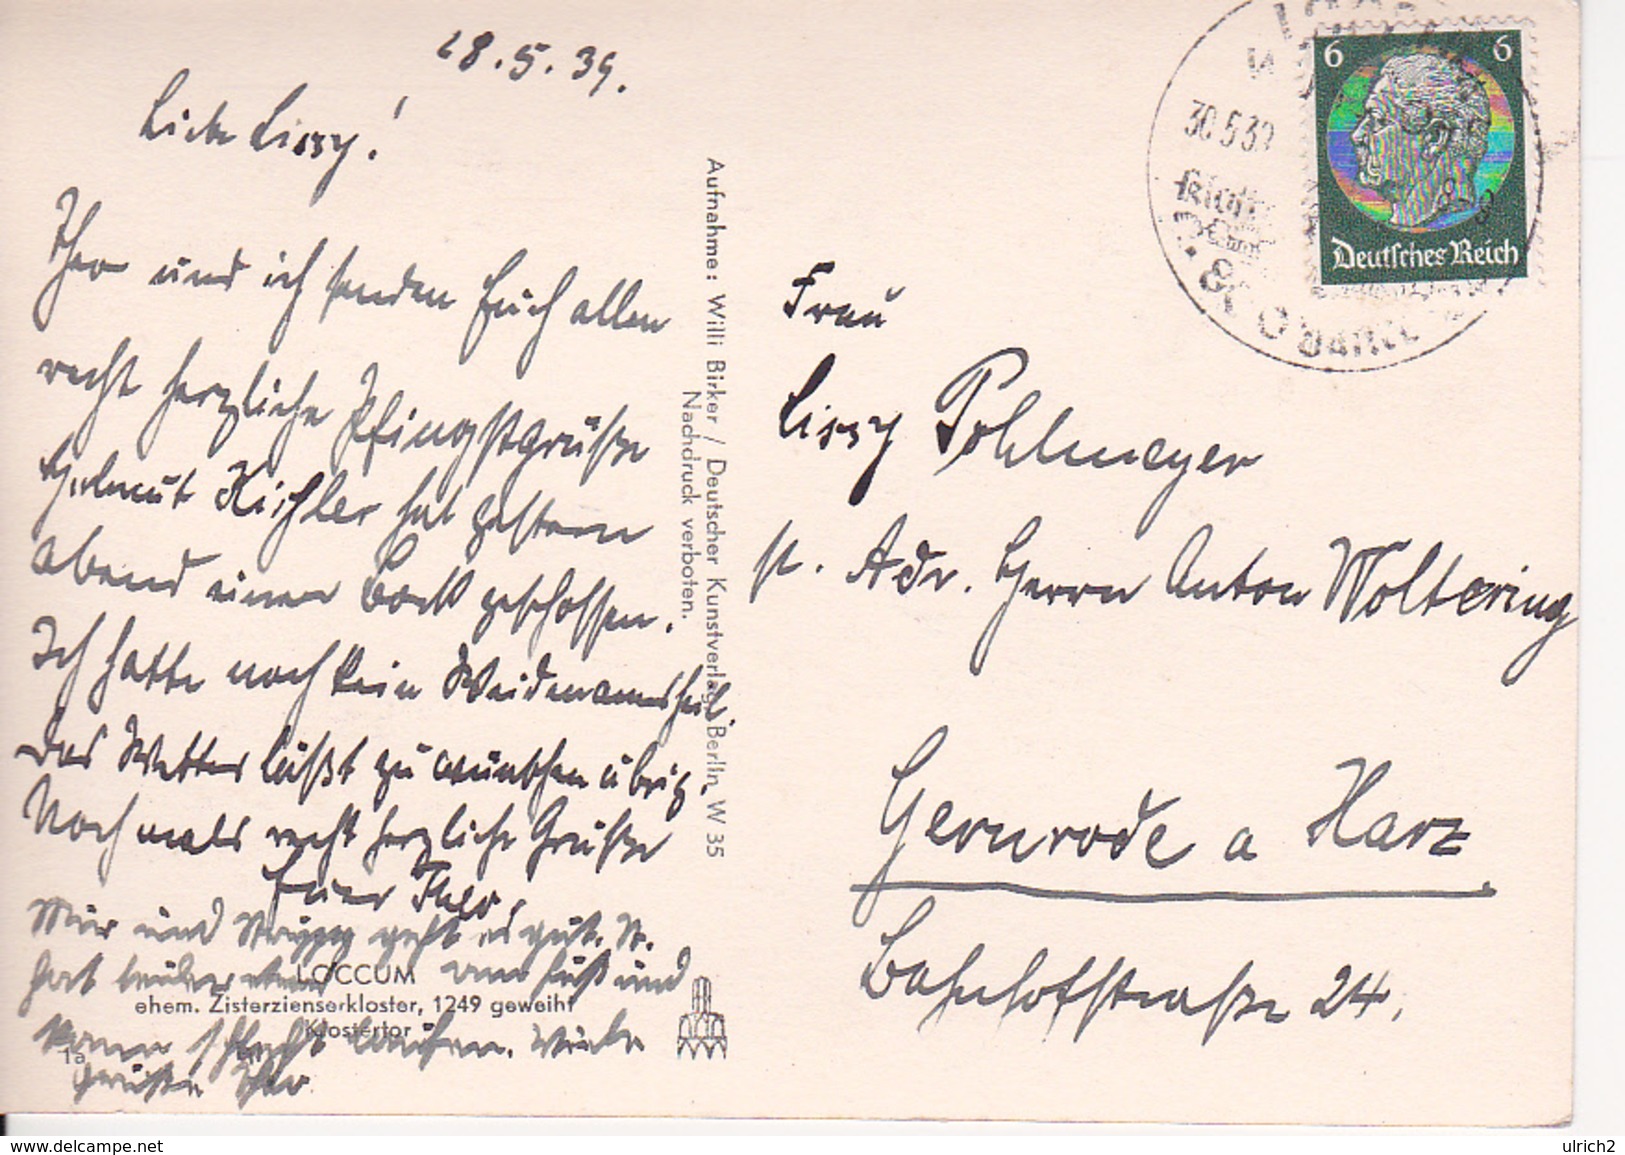 28.5.39.
Liebe Lissy!
Theo und ich senden Euch allen
recht herzliche Pfingstgrüße
Helmut Kichler hat gestern
abend einen Bock geschossen.
Ich hatte noch kein Weidmannsheil.
Das Wetter läßt zu wünschen übrig.
Nochmals recht herzliche Grüße
Euer Theo,
Mir und geht es gut.
hat am Fuß und
kann schlecht laufen. Viele
Grüße
LOCCUM
ehem. Zisterzienserkloster, 1249 geweiht
Klostertor
1a
Aufnahme: Willi Birker / Deutscher Kunstverlag, Berlin W 35
Nachdruck verboten.
30.5.39
6 6
Deutsches Reich
Frau
Lissy Pohlmeyer
p. Adr. Herrn Anton Woltering
Gernrode a Harz
Bahnhofstraße 24.
delcampe.net
ulrich2